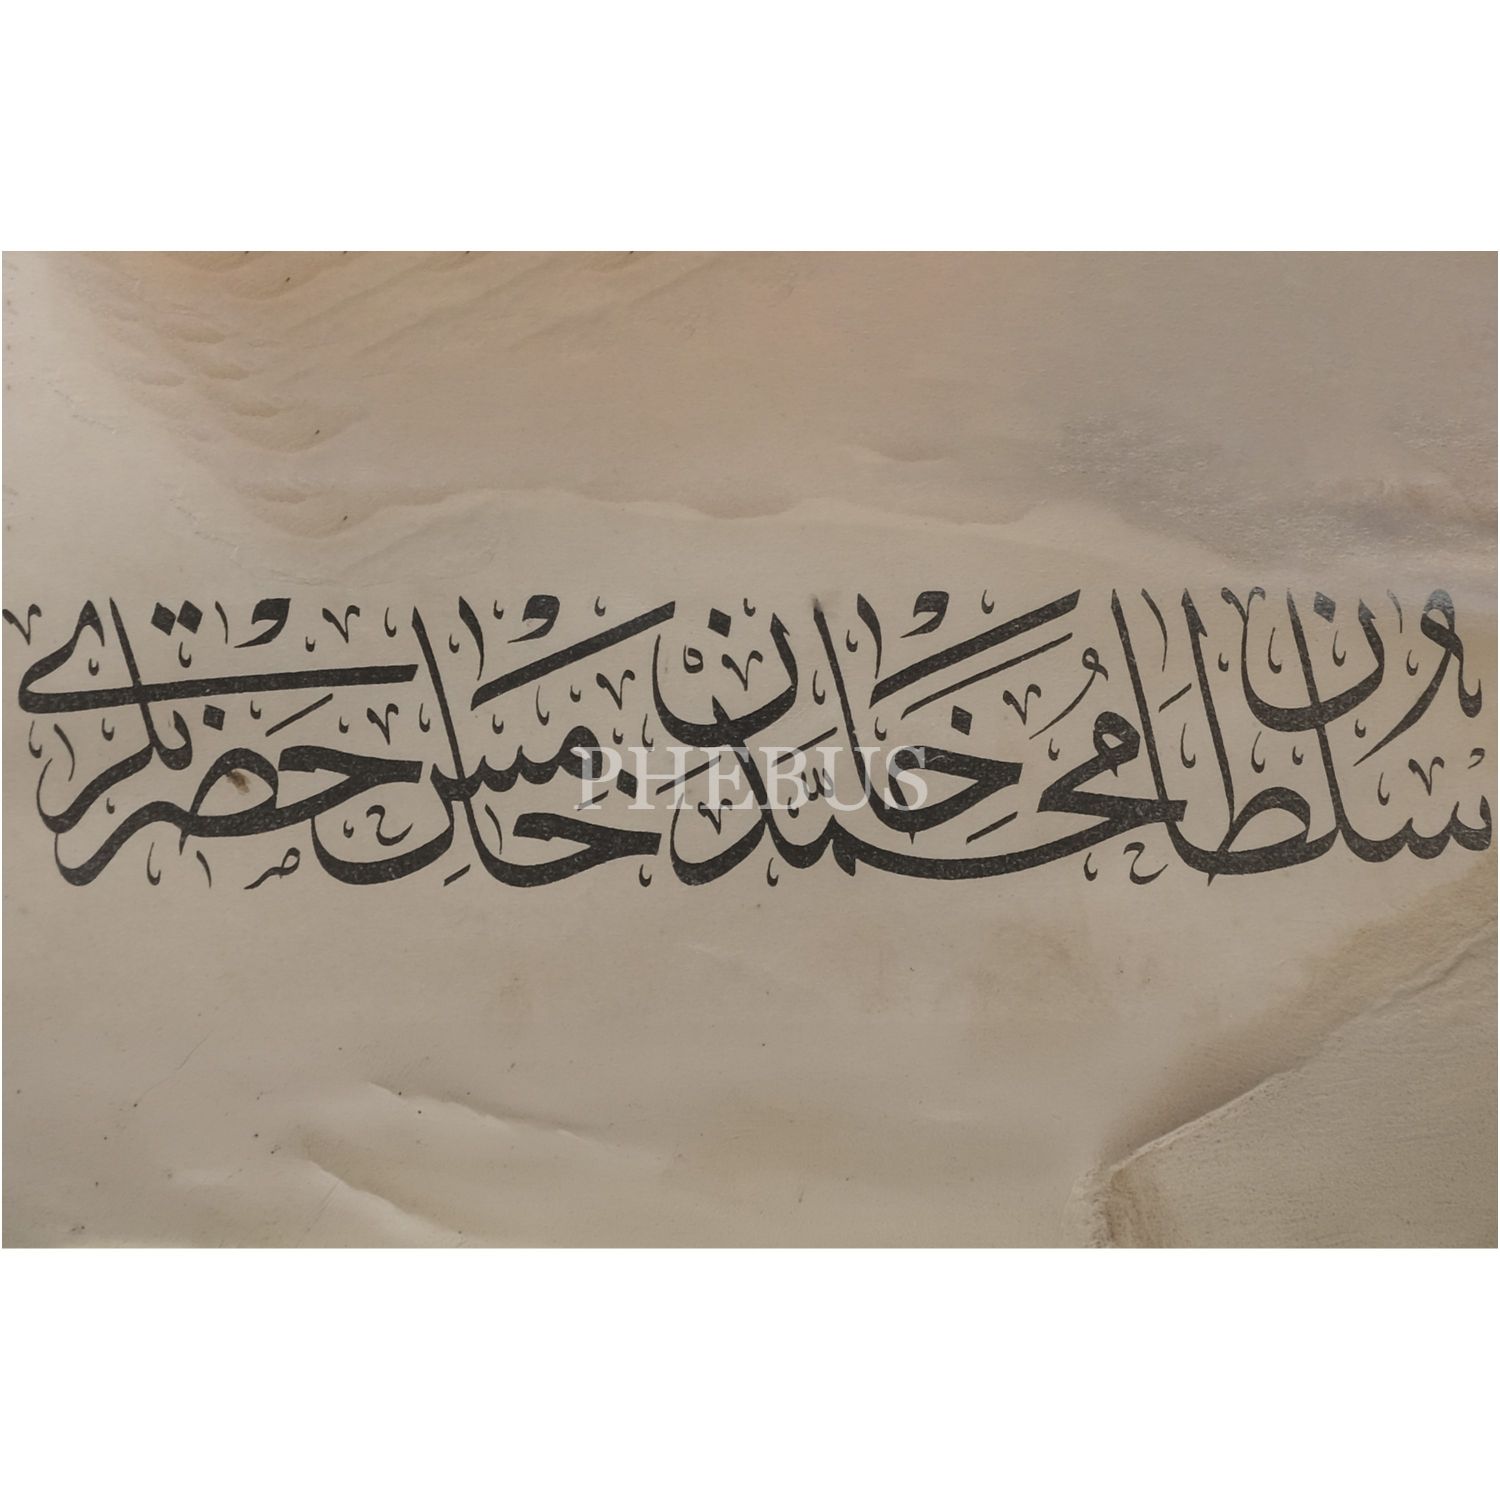 سلطان محمد خان خامس حضرتلرى
PHEBUS